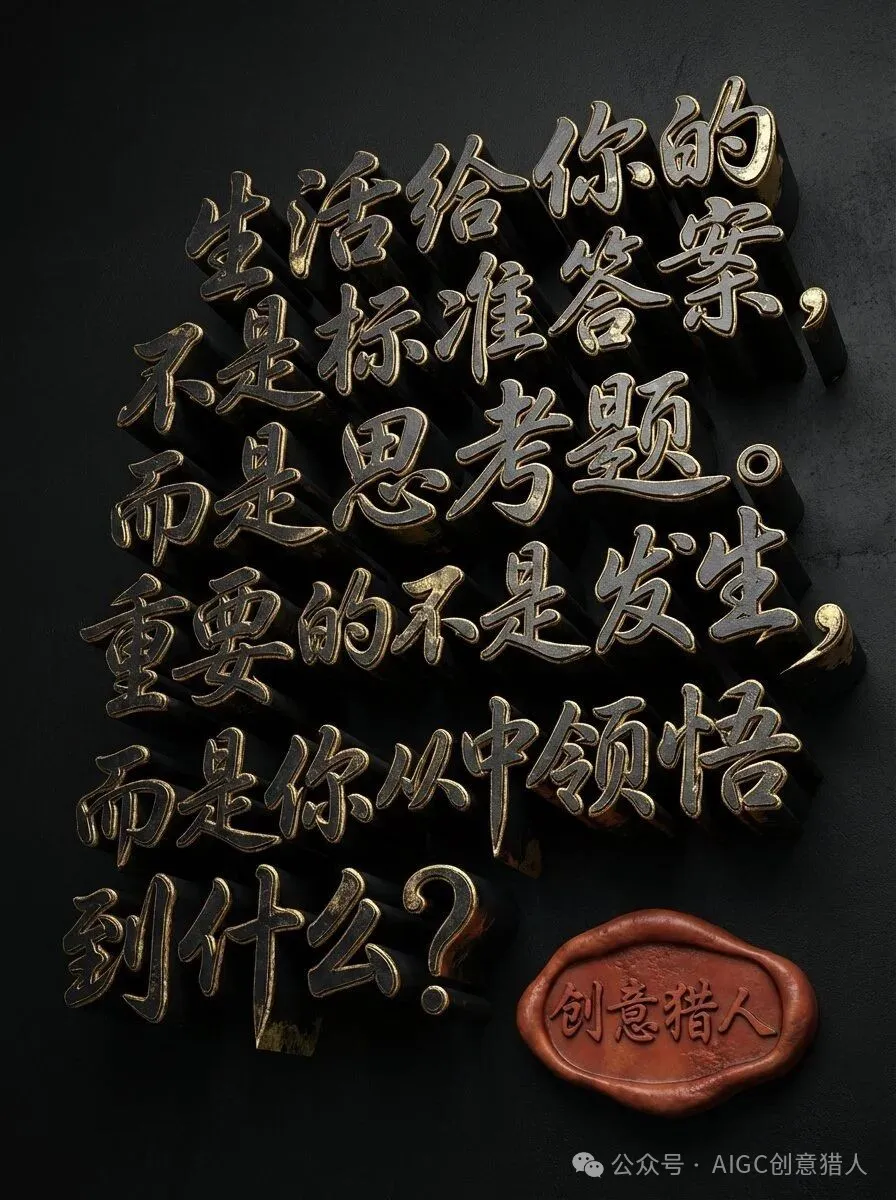 生活给你的
不是标准答案,
而是思考题。
重要的不是发生,
而是你从中领悟
到什么?
创意猎人
公众号 · AIGC创意猎人